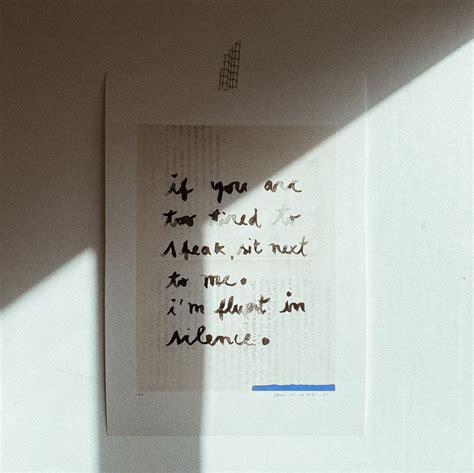 if you are
too tired to
speak, sit next
to me.
i'm fluent in
silence.